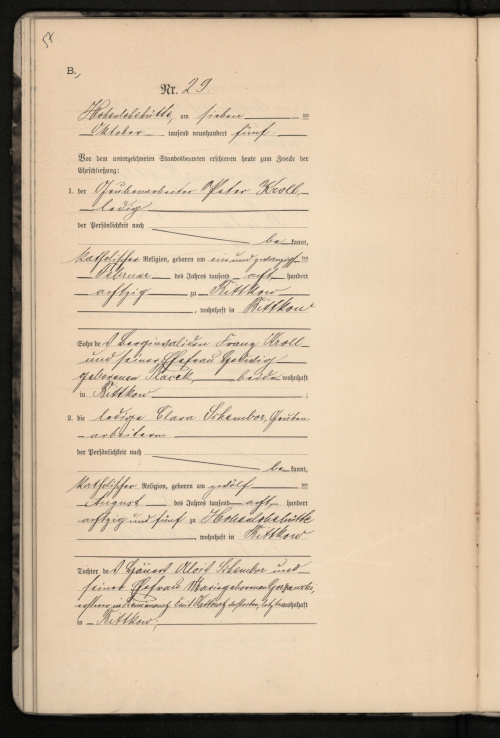 B.
Nr. 29
Hohenlohehütte, am sieben ten
Oktober tausend neunhundert fünf
Vor dem unterzeichneten Standesbeamten erschienen heute zum Zwecke der
Eheschließung:
1. der Grubenarbeiter Peter Kroll,
ledig
der Persönlichkeit nach
be kannt,
katholischer Religion, geboren am einundzwanzigsten
Februar des Jahres tausend acht hundert
achtzig zu Bittkow
, wohnhaft in Bittkow
Sohn des Berginvaliden Franz Kroll
und seiner Ehefrau Hedwig
geborenen beide wohnhaft
in Bittkow ;
2. die ledige Clara Schembor, Gruben
arbeiterin
der Persönlichkeit nach
be kannt,
katholischer Religion, geboren am zwölf ten
August des Jahres tausend acht hundert
achtzig und fünf zu Hohenlohehütte
, wohnhaft in Bittkow
Tochter des Alois Schembor und
seiner Ehefrau Marie geborenen
wohnhaft
in Bittkow,